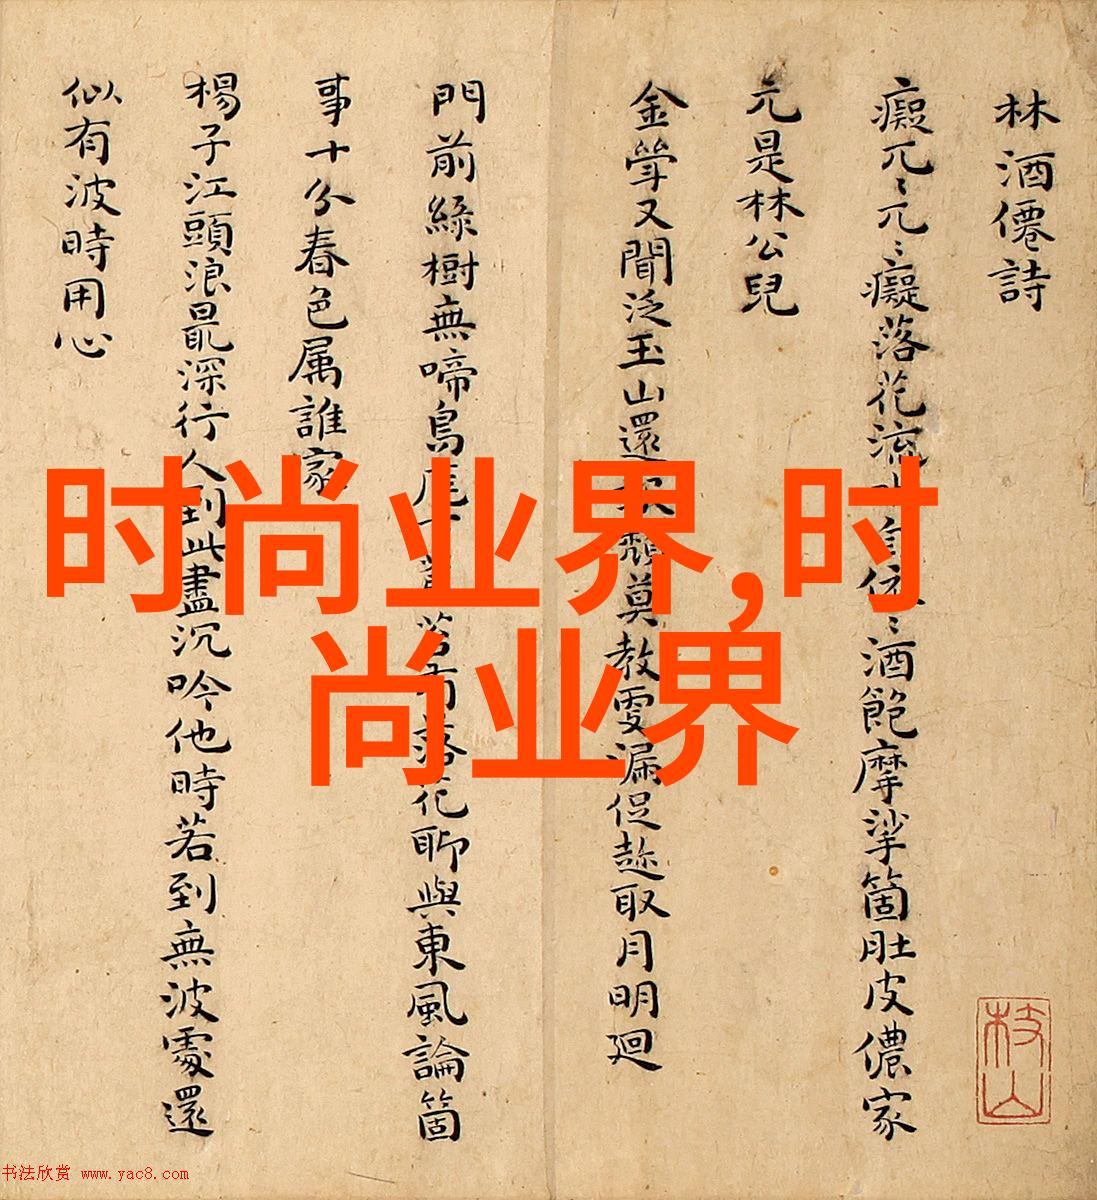 林酒僊詩
癡兀〻兀〻癡落花流
依〻酒飽摩挲箇肚皮儂家
元是林公兒
金斝又聞泛玉山還
頹莫教更漏促趁取月明廻
門前綠樹無啼鳥庭
落花聊與東風論箇
事十分春色属誰家
楊子江頭浪最深行人到此盡沉吟他時若到無波處還
似有波時用心
枝山
时尚业界,时
尚业界
书法欣赏 www.yac8.com